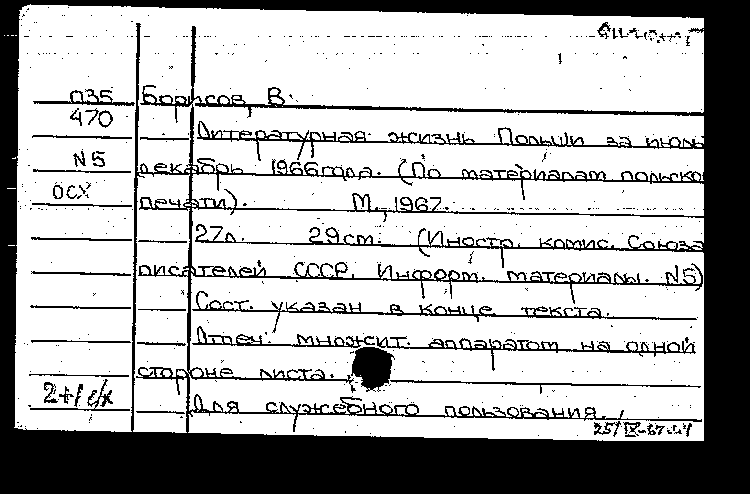 П35 Борисов, В.
470 Литературная жизнь Польши за июль
N5 декабрь 1966 года. (По материалам польско
ОСХ печати). М., 1967.
27л. 29см. (Иностр. комис. Союза
писателей СССР. Информ. материалы. N5)
Сост. указан в конце текста.
Отпеч. множит. аппаратом на одной
стороне листа.
2+1 с/х Для служебного пользования.